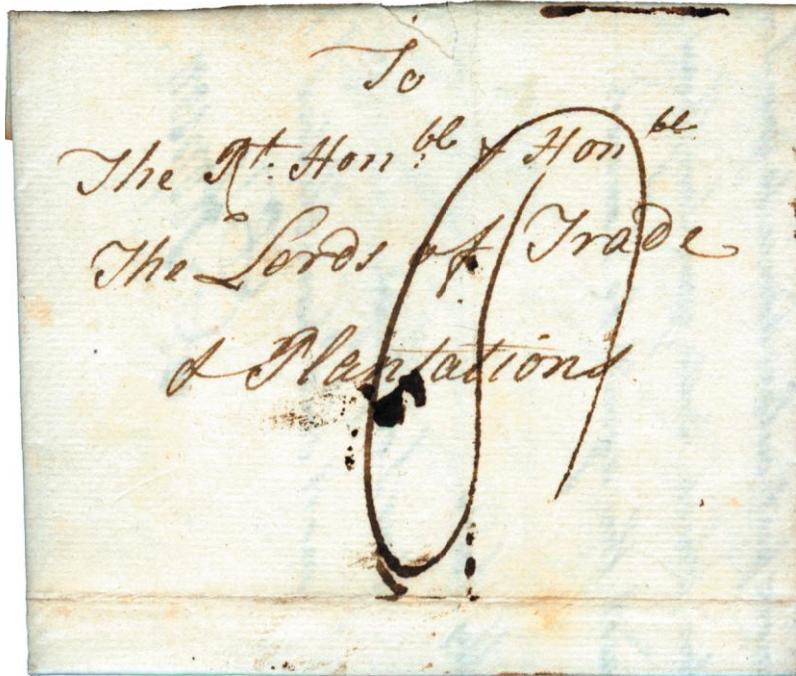 To
The Rt. Honble & Honble
The Lords of Trade
& Plantations